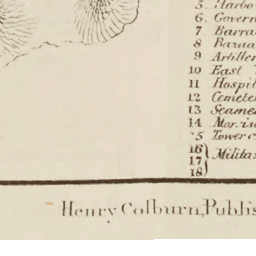 5. Harbo
6. Govern
7 Barra
8 Bazaa
9 Artiller
10 East
11 Hospit
12 Cemete
13 Seame
14 Moris
15 Tower
16
17 Milita
18
Henry Colburn, Publis